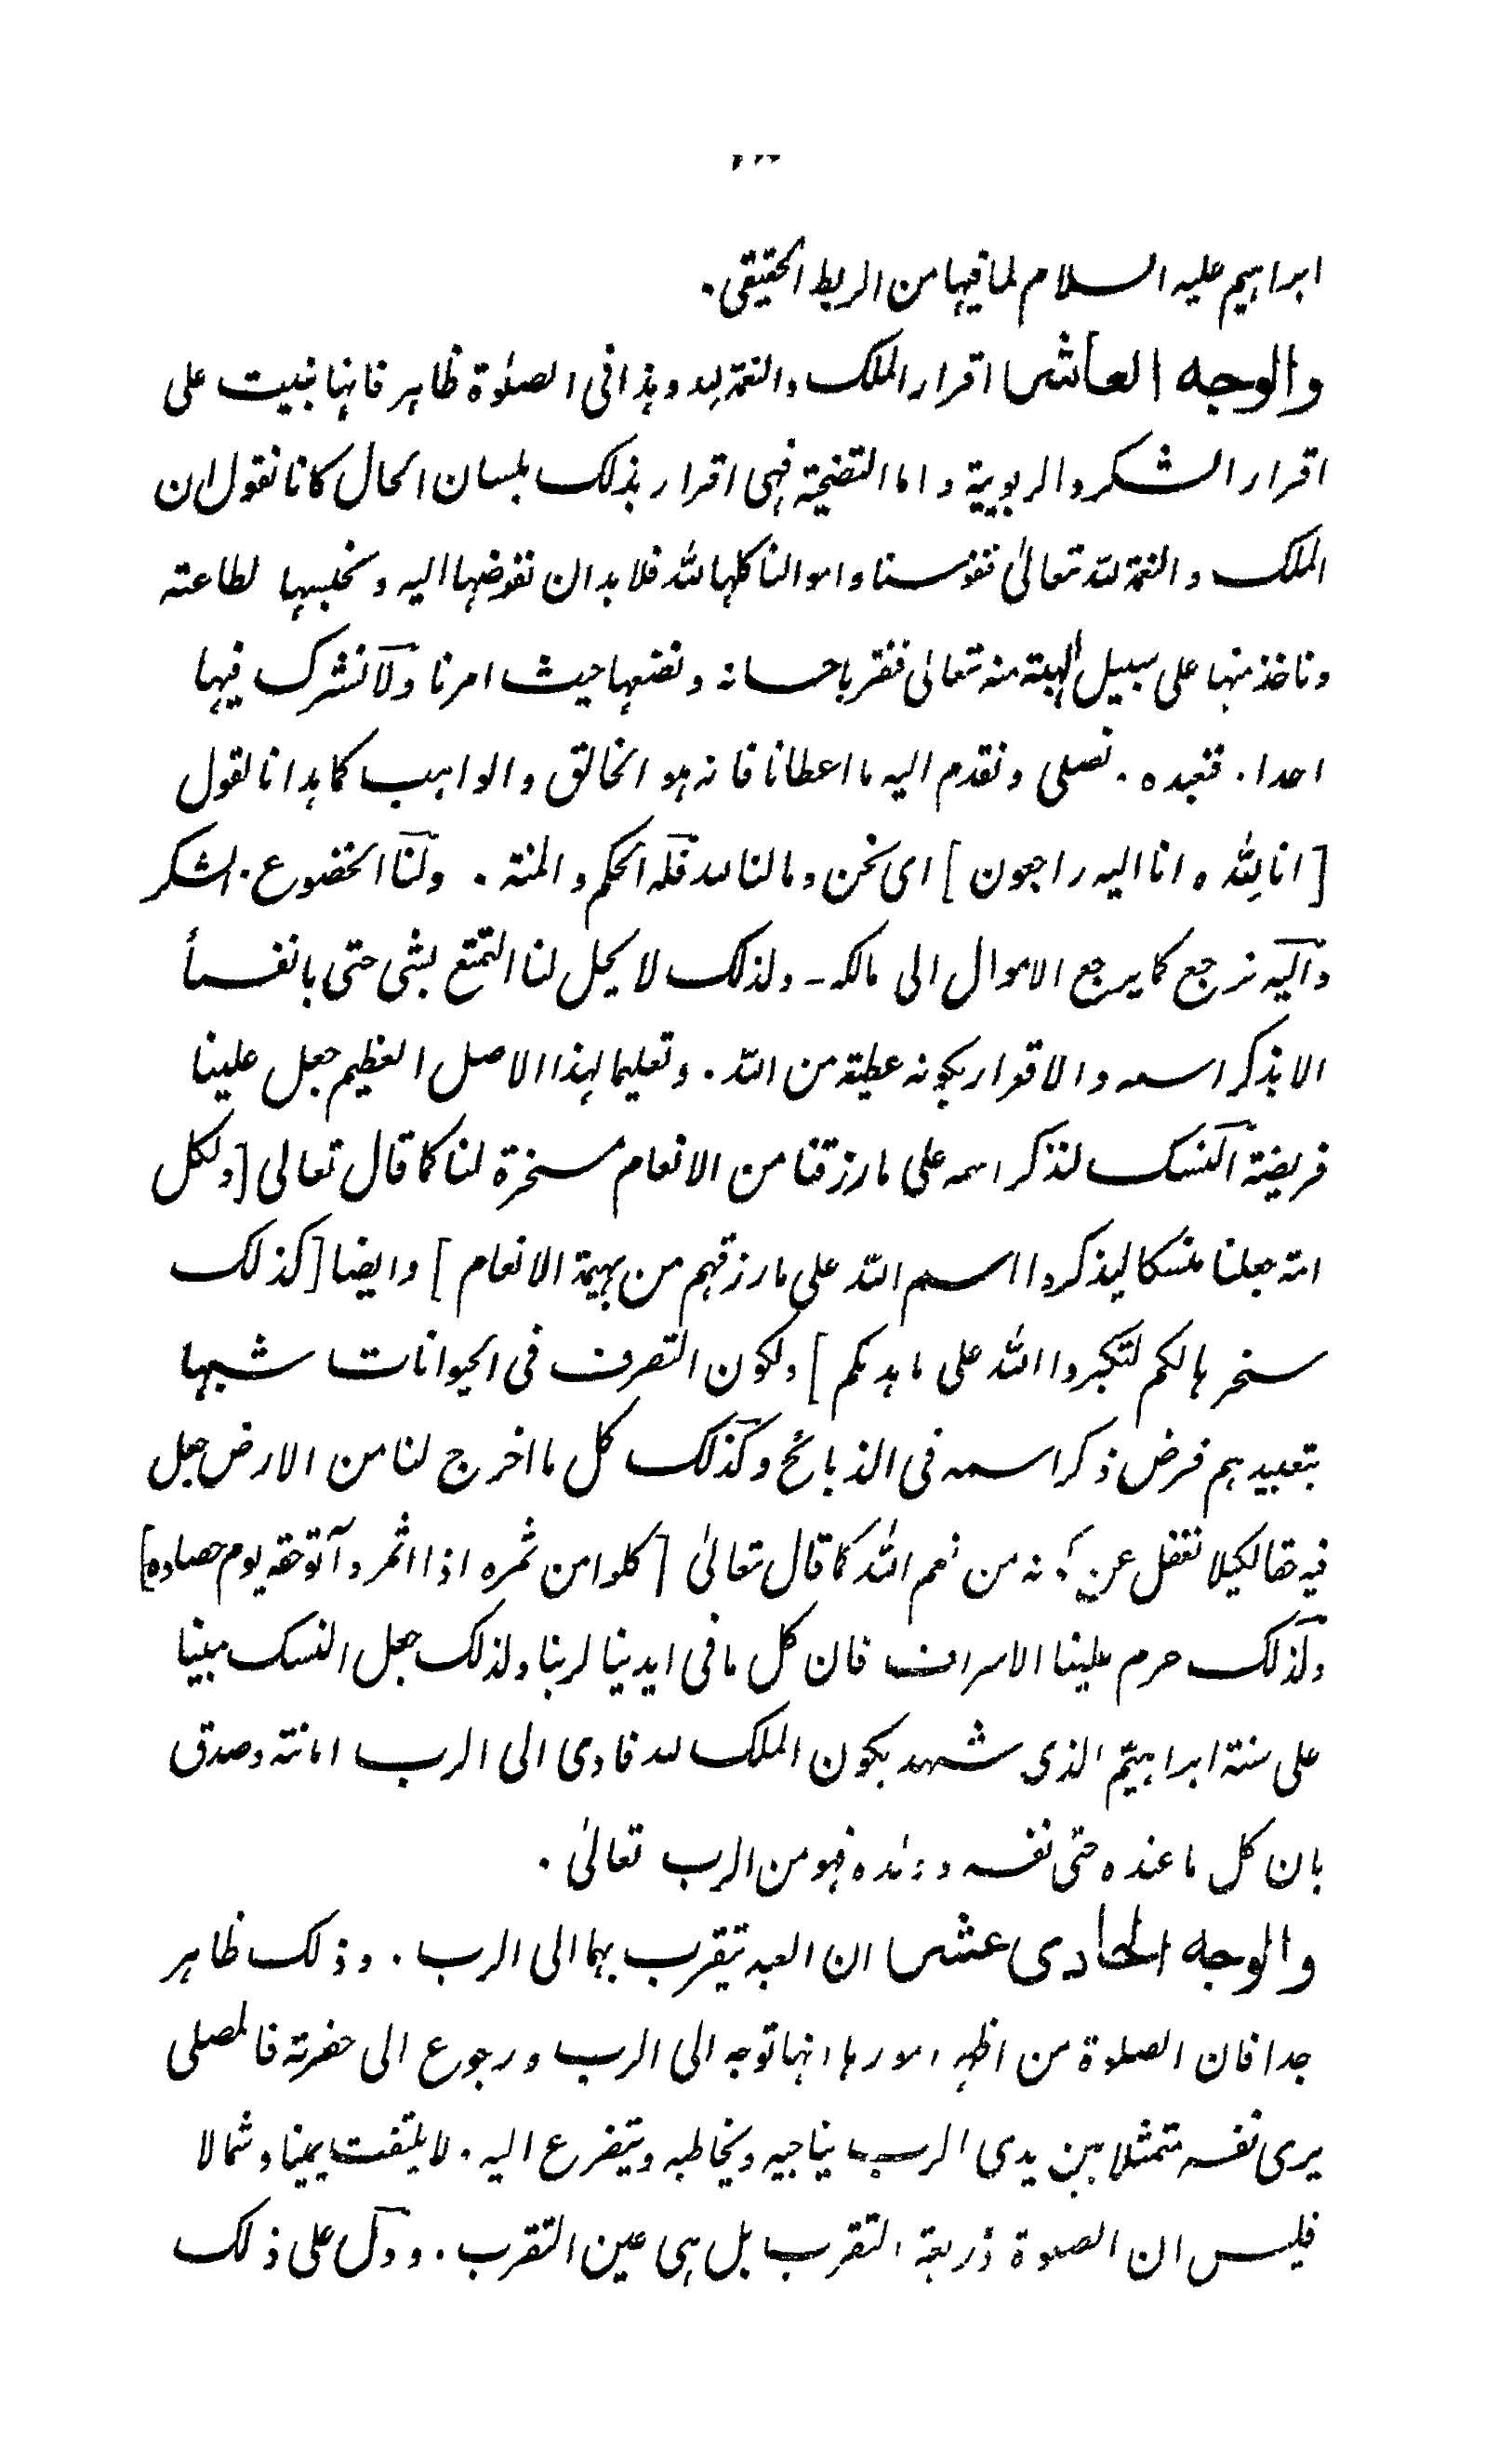 ابراهيم عليه السلام لما فيها من الربط الحقيقى.
والوجه العاشر اقرار الملك والنعمة لله وهذا فى الصلوٰة ظاهر فانها بنيت على
اقرار الشكر والربوبية واما التضحية فهى اقرار بذلك بلسان الحال كانا نقول ان
الملك والنعمة لله تعالىٰ نفوسنا واموالنا كلها لله فلابد ان نفوضها اليه ونحبسها لطاعته
وناخذ منها على سبيل الهبة منه تعالىٰ فنقر باحسانه ونضعها حيث امرنا ولا نشرك فيها
احدا. فنعبده. نصلى ونقدم اليه ما اعطانا فانه هو الخالق والواهب كما هدانا لقول
[انا لله وانا اليه راجعون] اى نحن ومالنا لله فله الحكم والمنة. ولنا الخضوع. الشكر
واليه نرجع كما يرجع الاموال الى مالكه ـ ولذلك لا يحل لنا التمتع بشى حتى بانفسنا
الا بذكر اسمه والاقرار بكونه عطية من الله. وتعليما لهذا الاصل العظيم جعل علينا
فريضة النسك لنذكر اسمه على ما رزقنا من الانعام مسخرة لنا كما قال تعالى [ولكل
امة جعلنا منسكا ليذكروا اسم الله على ما رزقهم من بهيمة الانعام] وايضا [كذلك
سخرها لكم لتكبروا الله على ما هدٰكم] ولكون التصرف فى الحيوانات شبها
بتعبيدهم فرض ذكر اسمه فى الذبائح وكذلك كل ما اخرج لنا من الارض جعل
فيه حقا لكيلا نغفل عن كونه من نعم الله كما قال تعالىٰ [كلوا من ثمره اذا اثمر وآتو حقه يوم حصاده]
ولذلك حرم علينا الاسراف فان كل ما فى ايدينا لربنا ولذلك جعل النسك مبنيا
على سنة ابراهيم الذى شهد بكون الملك لله فادى الى الرب امانته وصدق
بان كل ما عنده حتى نفسه وولده فهو من الرب تعالىٰ.
والوجه الحادى عشر ان العبد يتقرب بهما الى الرب. وذلك ظاهر
جدا فان الصلوة من اظهر امورها انها توجه الى الرب ورجوع الى حضرته فالمصلى
يرى نفسه متمثلا بين يدى الرب يناجيه ويخاطبه ويتضرع اليه. لا يلتفت يمينا وشمالا
فليس ان الصلوة ذريعة التقرب بل هى عين التقرب. ودل على ذلك